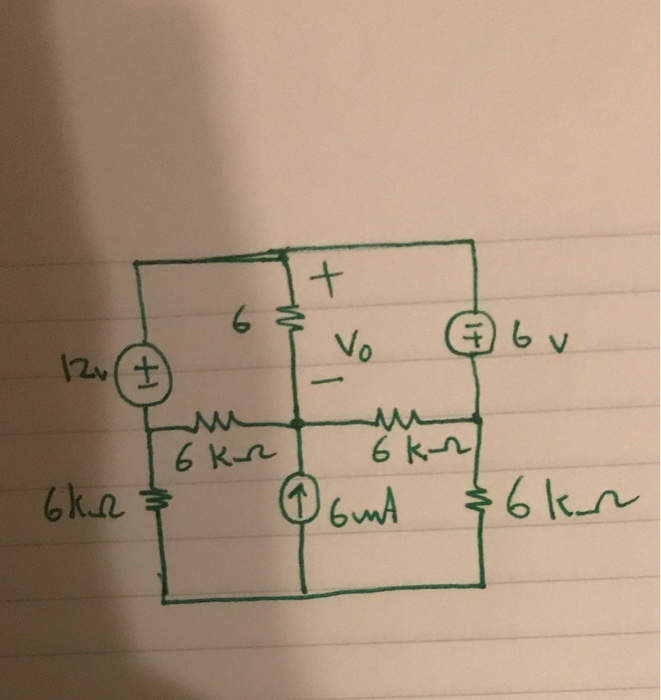 +
6
Vo
12v
±
∓
6 v
−
6 kΩ
6 kΩ
6kΩ
↑
6mA
6 kΩ